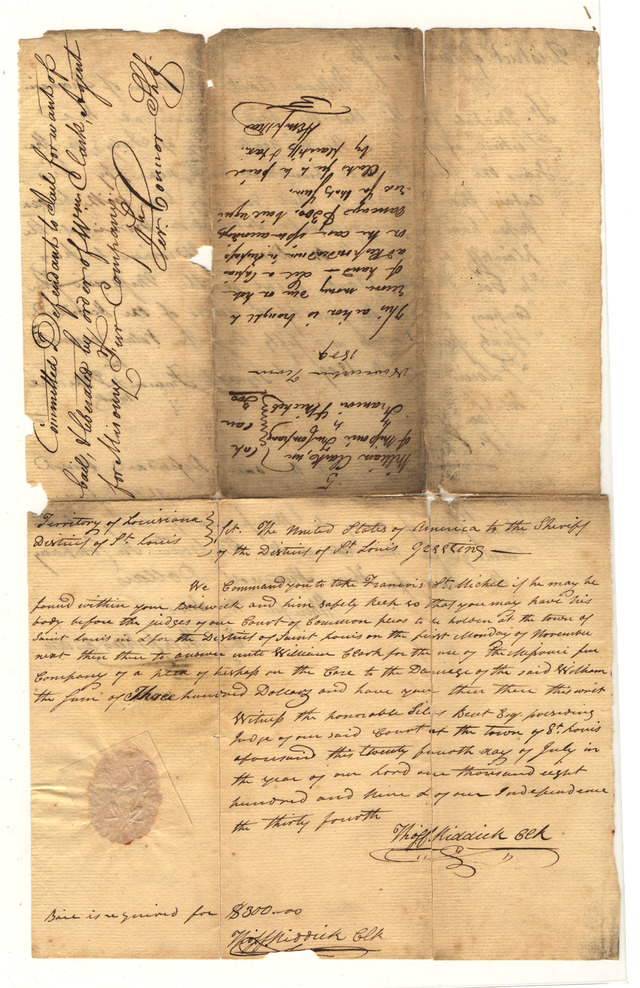 Committed Defendant to Jail for want of
bail, & liberated by order of Wm. Clark, Agent
for Missoury Fur Company.
Jer. Connor Shff
5
William Clark, use
of Missouri Fur Company
vs
Francois St. Michel
Cap
Case
300
November Term
1809
This action is brought to
recover money due on note
of hand - let a capias
ad Respondendum, in trespass
on the case, upon assumpsit
damages $300. bail requi
red for that sum.
Clerk fee, to be paid
by plaintiffs Atty.
Hempstead
Territory of Louisiana
District of St. Louis
Sct. The United States of America to the Sheriff
of the District of St. Louis Greeting —
We Command you to take Francois St. Michel if he may be
found within your Bailiwick and him safely keep so that you may have his
body before the judges of our Court of Common pleas to be holden at the town of
Saint Louis in & for the District of Saint Louis on the first Monday of November
next then there to answer unto William Clark for the use of the Missouri fur
Company of a plea of trespass on the Case to the Damage of the said William
the sum of Three hundred Dollars and have you then there this writ
Witness the honorable Silas Bent Esq. presiding
Judge of our said Court at the town of St. Louis
aforesaid this twenty fourth day of July in
the year of our Lord one thousand eight
hundred and Nine & of our Independence
the thirty fourth
Thos. F. Riddick Clk
Bail is required for $300.00
Thos. F. Riddick Clk